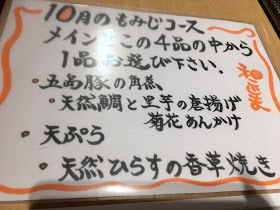 10月のもみじコース
メインはこの4品の中から
1品お選び下さい。
・五島豚の角煮
・天然鯛と里芋の唐揚げ
菊花あんかけ
・天ぷら
・天然ひらすの香草焼き